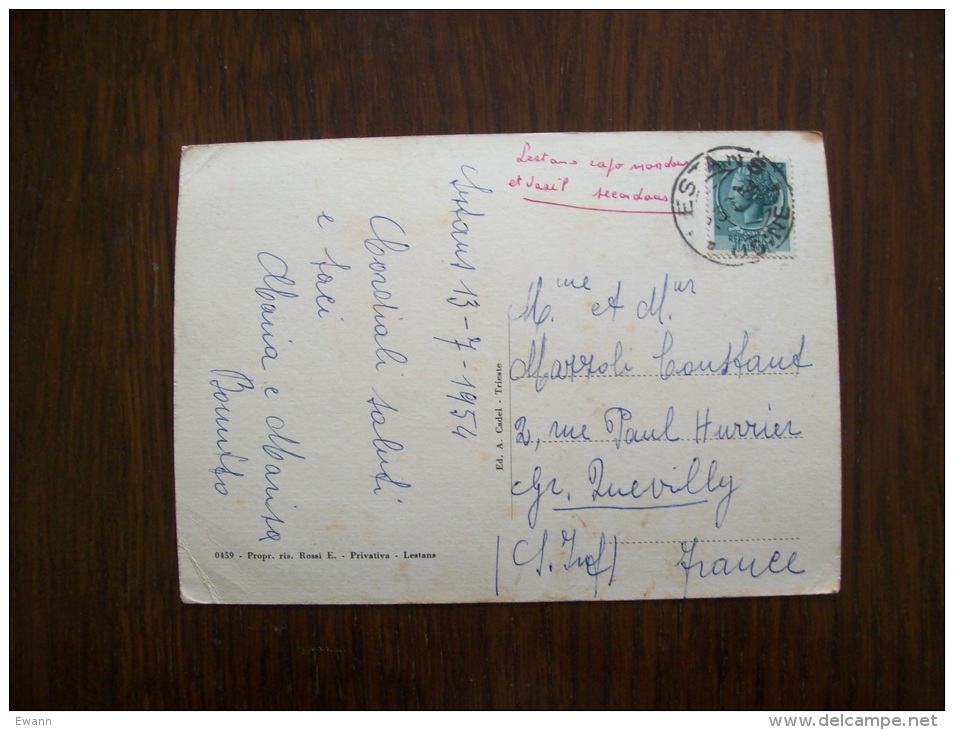 Lestans
et secondous
LESTANS
UDINE
Lestans 13-7-1954
Cordiali saluti
e baci
Maria e Marisa
Bonutto
0459 - Propr. ris. Rossi E. - Privativa - Lestans
Ed. A. Cadel - Trieste
Mme et Mur
Mazzoli Constant
2, rue Paul Hurrier
Gr. Quevilly
(S. Inf) France
Ewann
www.delcampe.net